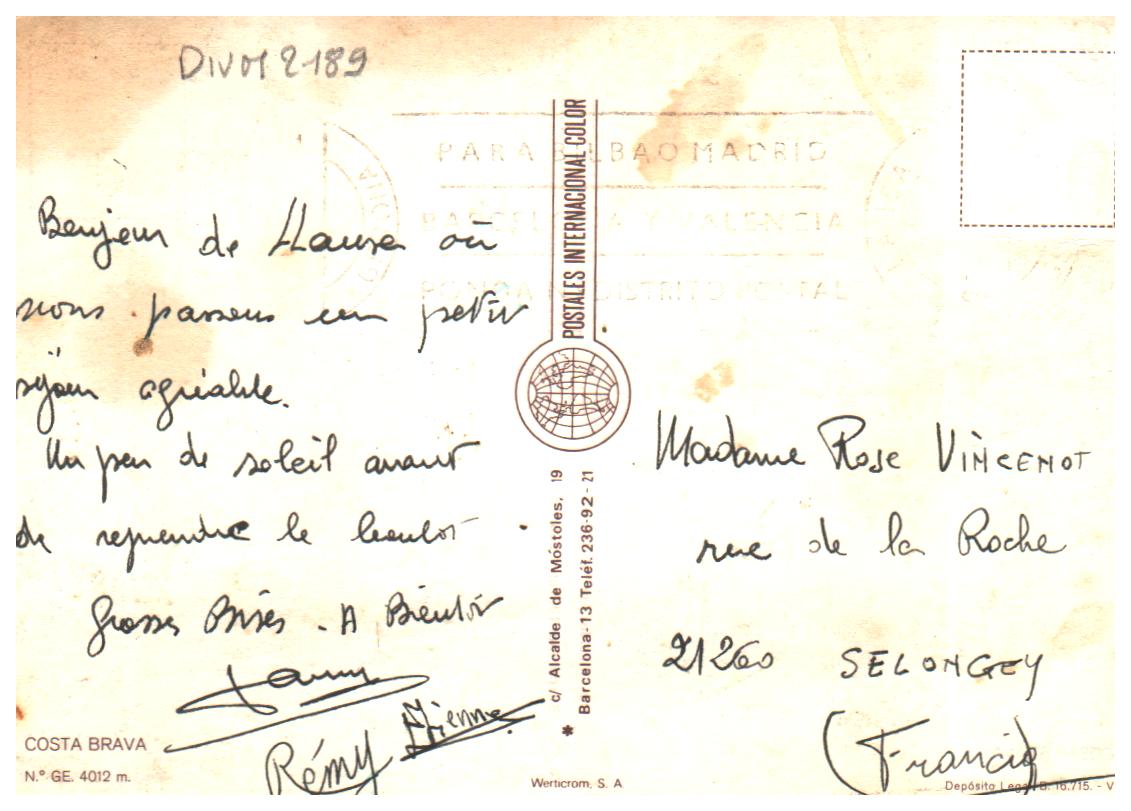 DIVOY 2189
PARA BILBAO MADRID
BARCELONA Y VALENCIA
PONGA Nº DISTRITO POSTAL
Bonjour de Llansa où
nous passons un petit
séjour agréable.
Un peu de soleil avant
de reprendre le boulot.
Grosses Bises - A Bientôt
Rémy Etienne
COSTA BRAVA
N.º GE. 4012 m.
POSTALES INTERNACIONAL COLOR
c/ Alcalde de Móstoles, 19
Barcelona-13 Teléf. 236-92-21
*
Werticrom, S. A
Madame Rose VINCENOT
rue de la Roche
21260 SELONGEY
(Francia)
Depósito Legal B. 16.715. - V